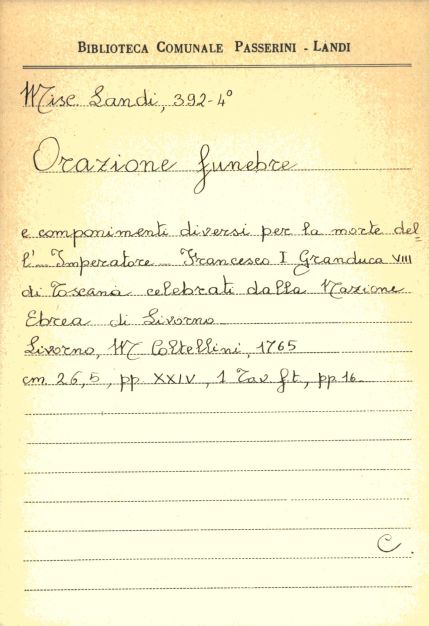 BIBLIOTECA COMUNALE PASSERINI - LANDI
Misc. Landi, 392-4°
Orazione funebre
e componimenti diversi per la morte del=
l' Imperatore Francesco I Granduca VIII
di Toscana celebrati dalla Nazione
Ebrea di Livorno
Livorno, M Coltellini, 1765
cm. 26,5, pp XXIV, 1 Tav f.t., pp 16
C.